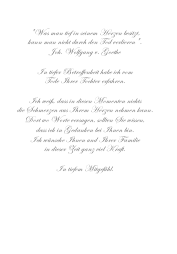 "Was man tief in seinem Herzen besitzt,
kann man nicht durch den Tod verlieren".
Joh. Wolfgang v. Goethe
In tiefer Betroffenheit habe ich vom
Tode Ihrer Tochter erfahren.
Ich weiß, dass in diesen Momenten nichts
die Schmerzen aus Ihrem Herzen nehmen kann.
Dort wo Worte versagen, sollten Sie wissen,
dass ich in Gedanken bei Ihnen bin.
Ich wünsche Ihnen und Ihrer Familie
in dieser Zeit ganz viel Kraft.
In tiefem Mitgefühl.